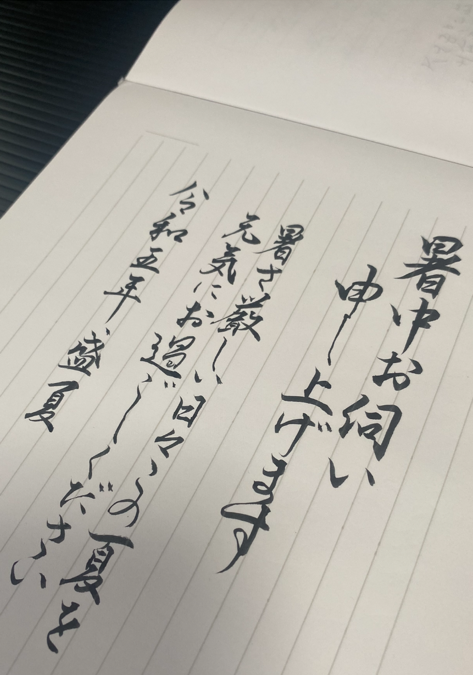 暑中お伺い
申し上げます
暑さ厳しい日々この夏を
元気にお過ごしください
令和五年 盛夏